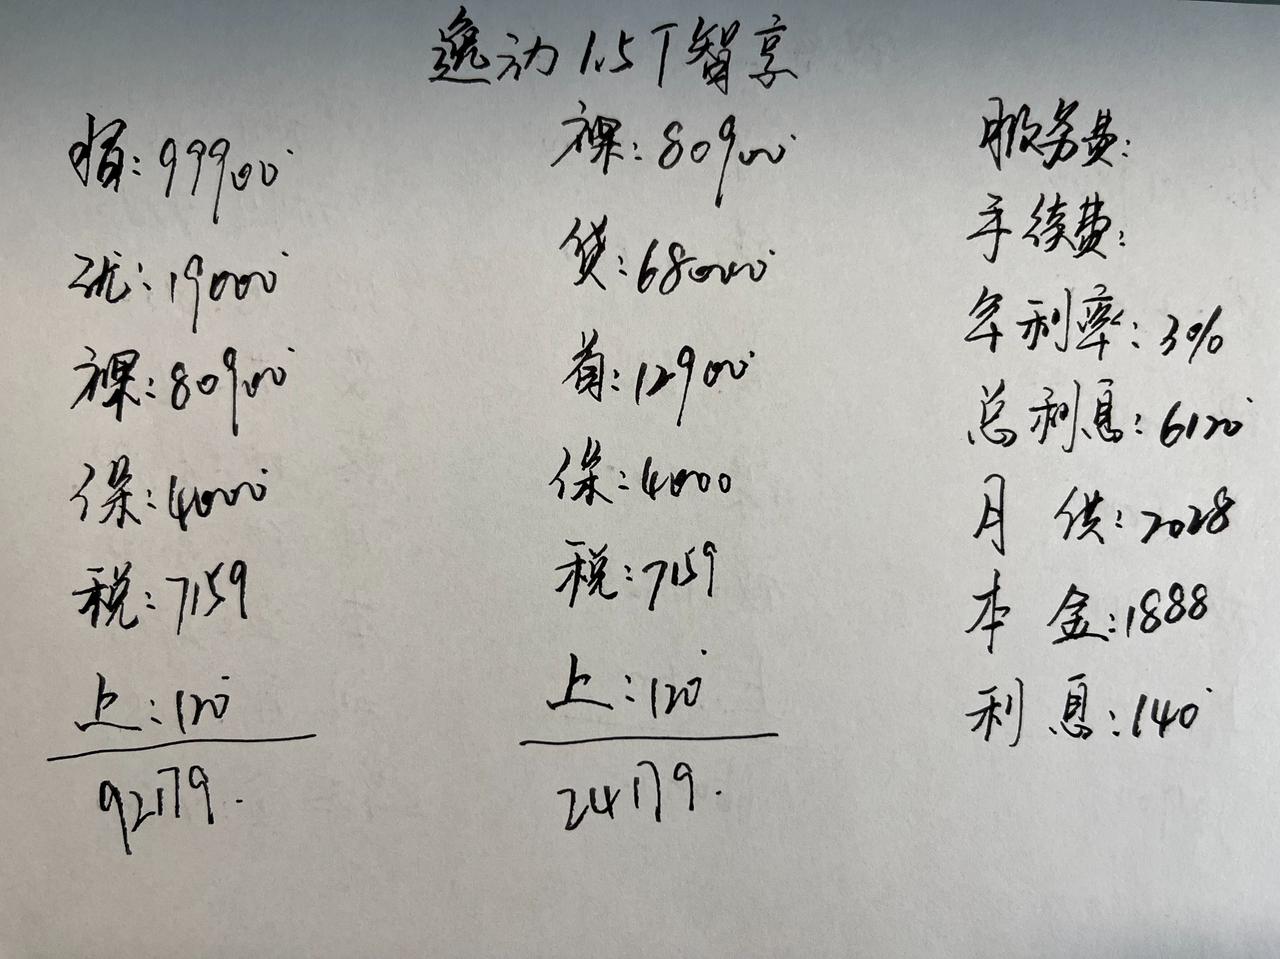 逸动1.5T智享
指:99900
优:19000
裸:80900
保:4000
税:7159
上:120
92179.
裸:80900
贷:68000
首:12900
保:4000
税:7159
上:120
24179.
服务费:
手续费:
年利率:3%
总利息:6120
月供:2028
本金:1888
利息:140